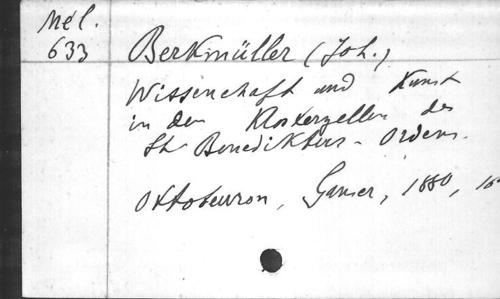 Mél.
633
Berkmüller (Joh.)
Wissenchaft und Kunst
in den Klosterzellen des
St Benediktus - Ordens.
Ottobeuron, Ganser, 1880,